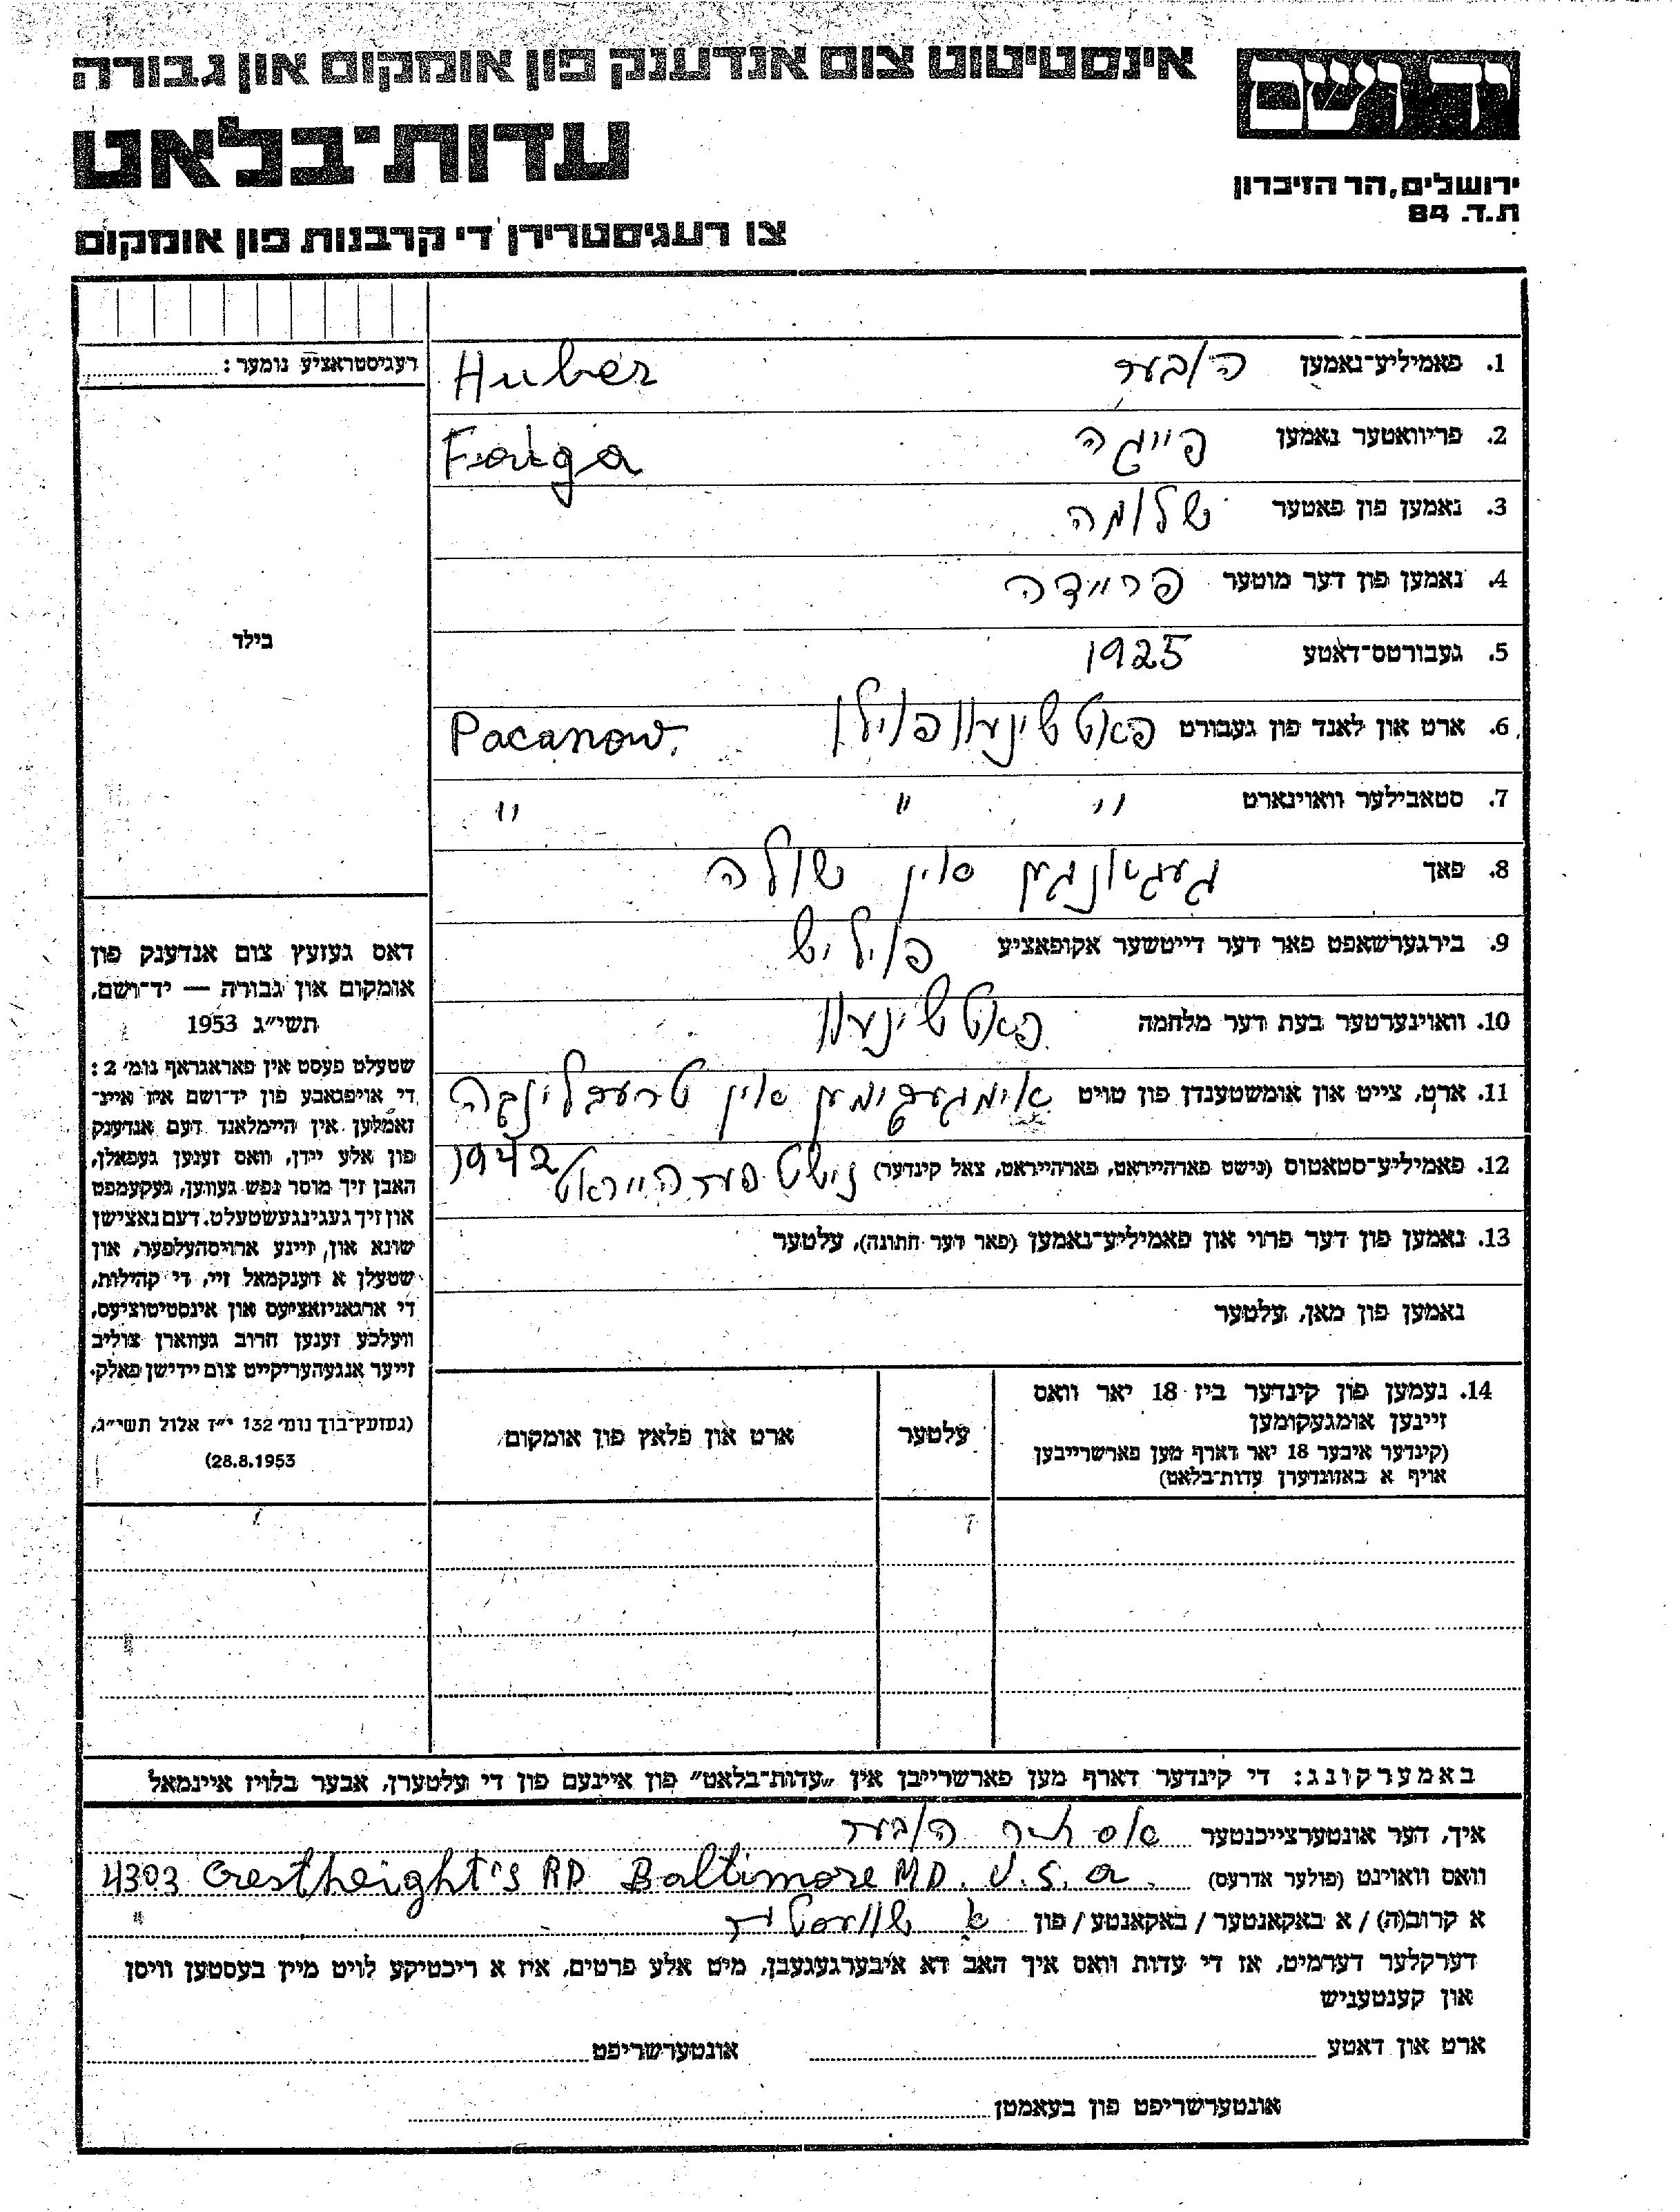 אינסטיטוט צום אנדענק פון אומקום און גבורה
יד ושם
עדות־בלאט
ירושלים, הר הזיכרון
ת.ד. 84
צו רעגיסטרירן די קרבנות פון אומקום
רעגיסטראציע נומער:
1. פאמיליע־נאמען הובער Huber
2. פריוואטער נאמען פייגה Faiga
3. נאמען פון פאטער שלומה
4. נאמען פון דער מוטער פריידה
5. געבורטס־דאטע 1925
6. ארט און לאנד פון געבורט פאטשינעוו פוילן Pacanow.
7. סטאבילער וואוינארט " " "
8. פאך געגאנגען אין שולה
9. בירגערשאפט פאר דער דייטשער אקופאציע פויליש
10. וואוינערטער בעת דער מלחמה פאטשינעוו
11. ארט, צייט און אומשטענדן פון טויט אומגעקומען אין טרעבלינקה
1942
12. פאמיליע־סטאטוס (נישט פארהייראט, פארהייראט, צאל קינדער) נישט פערהייראט
13. נאמען פון דער פרוי און פאמיליע־נאמען (פאר דער חתונה), עלטער
נאמען פון מאן, עלטער
בילד
דאס געזעץ צום אנדענק פון
אומקום און גבורה — יד־ושם,
תשי״ג 1953
שטעלט פעסט אין פאראגראף נומ׳ 2:
די אויפגאבע פון יד־ושם איז איינ־
זאמלען אין היימלאנד דעם אנדענק
פון אלע יידן, וואס זענען געפאלן,
האבן זיך מוסר נפש געווען, געקעמפט
און זיך געגינגעשטעלט. דעם נאצישן
שונא און, זיינע ארויסהעלפער, און
שטעלן א דענקמאל זיי, די קהילות,
די ארגאניזאציעס און אינסטיטוציעס,
וועלכע זענען חרוב געווארן צוליב
זייער אנגעהעריקייט צום יידישן פאלק.
(געזעץ־בוך נומ׳ 132 י״ז אלול תשי״ג,
28.8.1953)
14. נעמען פון קינדער ביז 18 יאר וואס
זיינען אומגעקומען
(קינדער איבער 18 יאר דארף מען פארשרייבן
אויף א באזונדערן עדות־בלאט)
עלטער
ארט און פלאץ פון אומקום
באמערקונג: די קינדער דארף מען פארשרייבן אין „עדות־בלאט” פון איינעם פון די עלטערן, אבער בלויז איינמאל
איך, דער אונטערצייכנטער הובער
וואס וואוינט (פולער אדרעס) 4303 Crestheight's RD Baltimore MD. U.S.a.
א קרוב(ה) / א באקאנטער / באקאנטע / פון א
דערקלער דערמיט, אז די עדות וואס איך האב דא איבערגעגעבן, מיט אלע פרטים, איז א ריכטיקע לויט מיין בעסטען וויסן
און קענטעניש
ארט און דאטע אונטערשריפט
אונטערשריפט פון בעאמטן